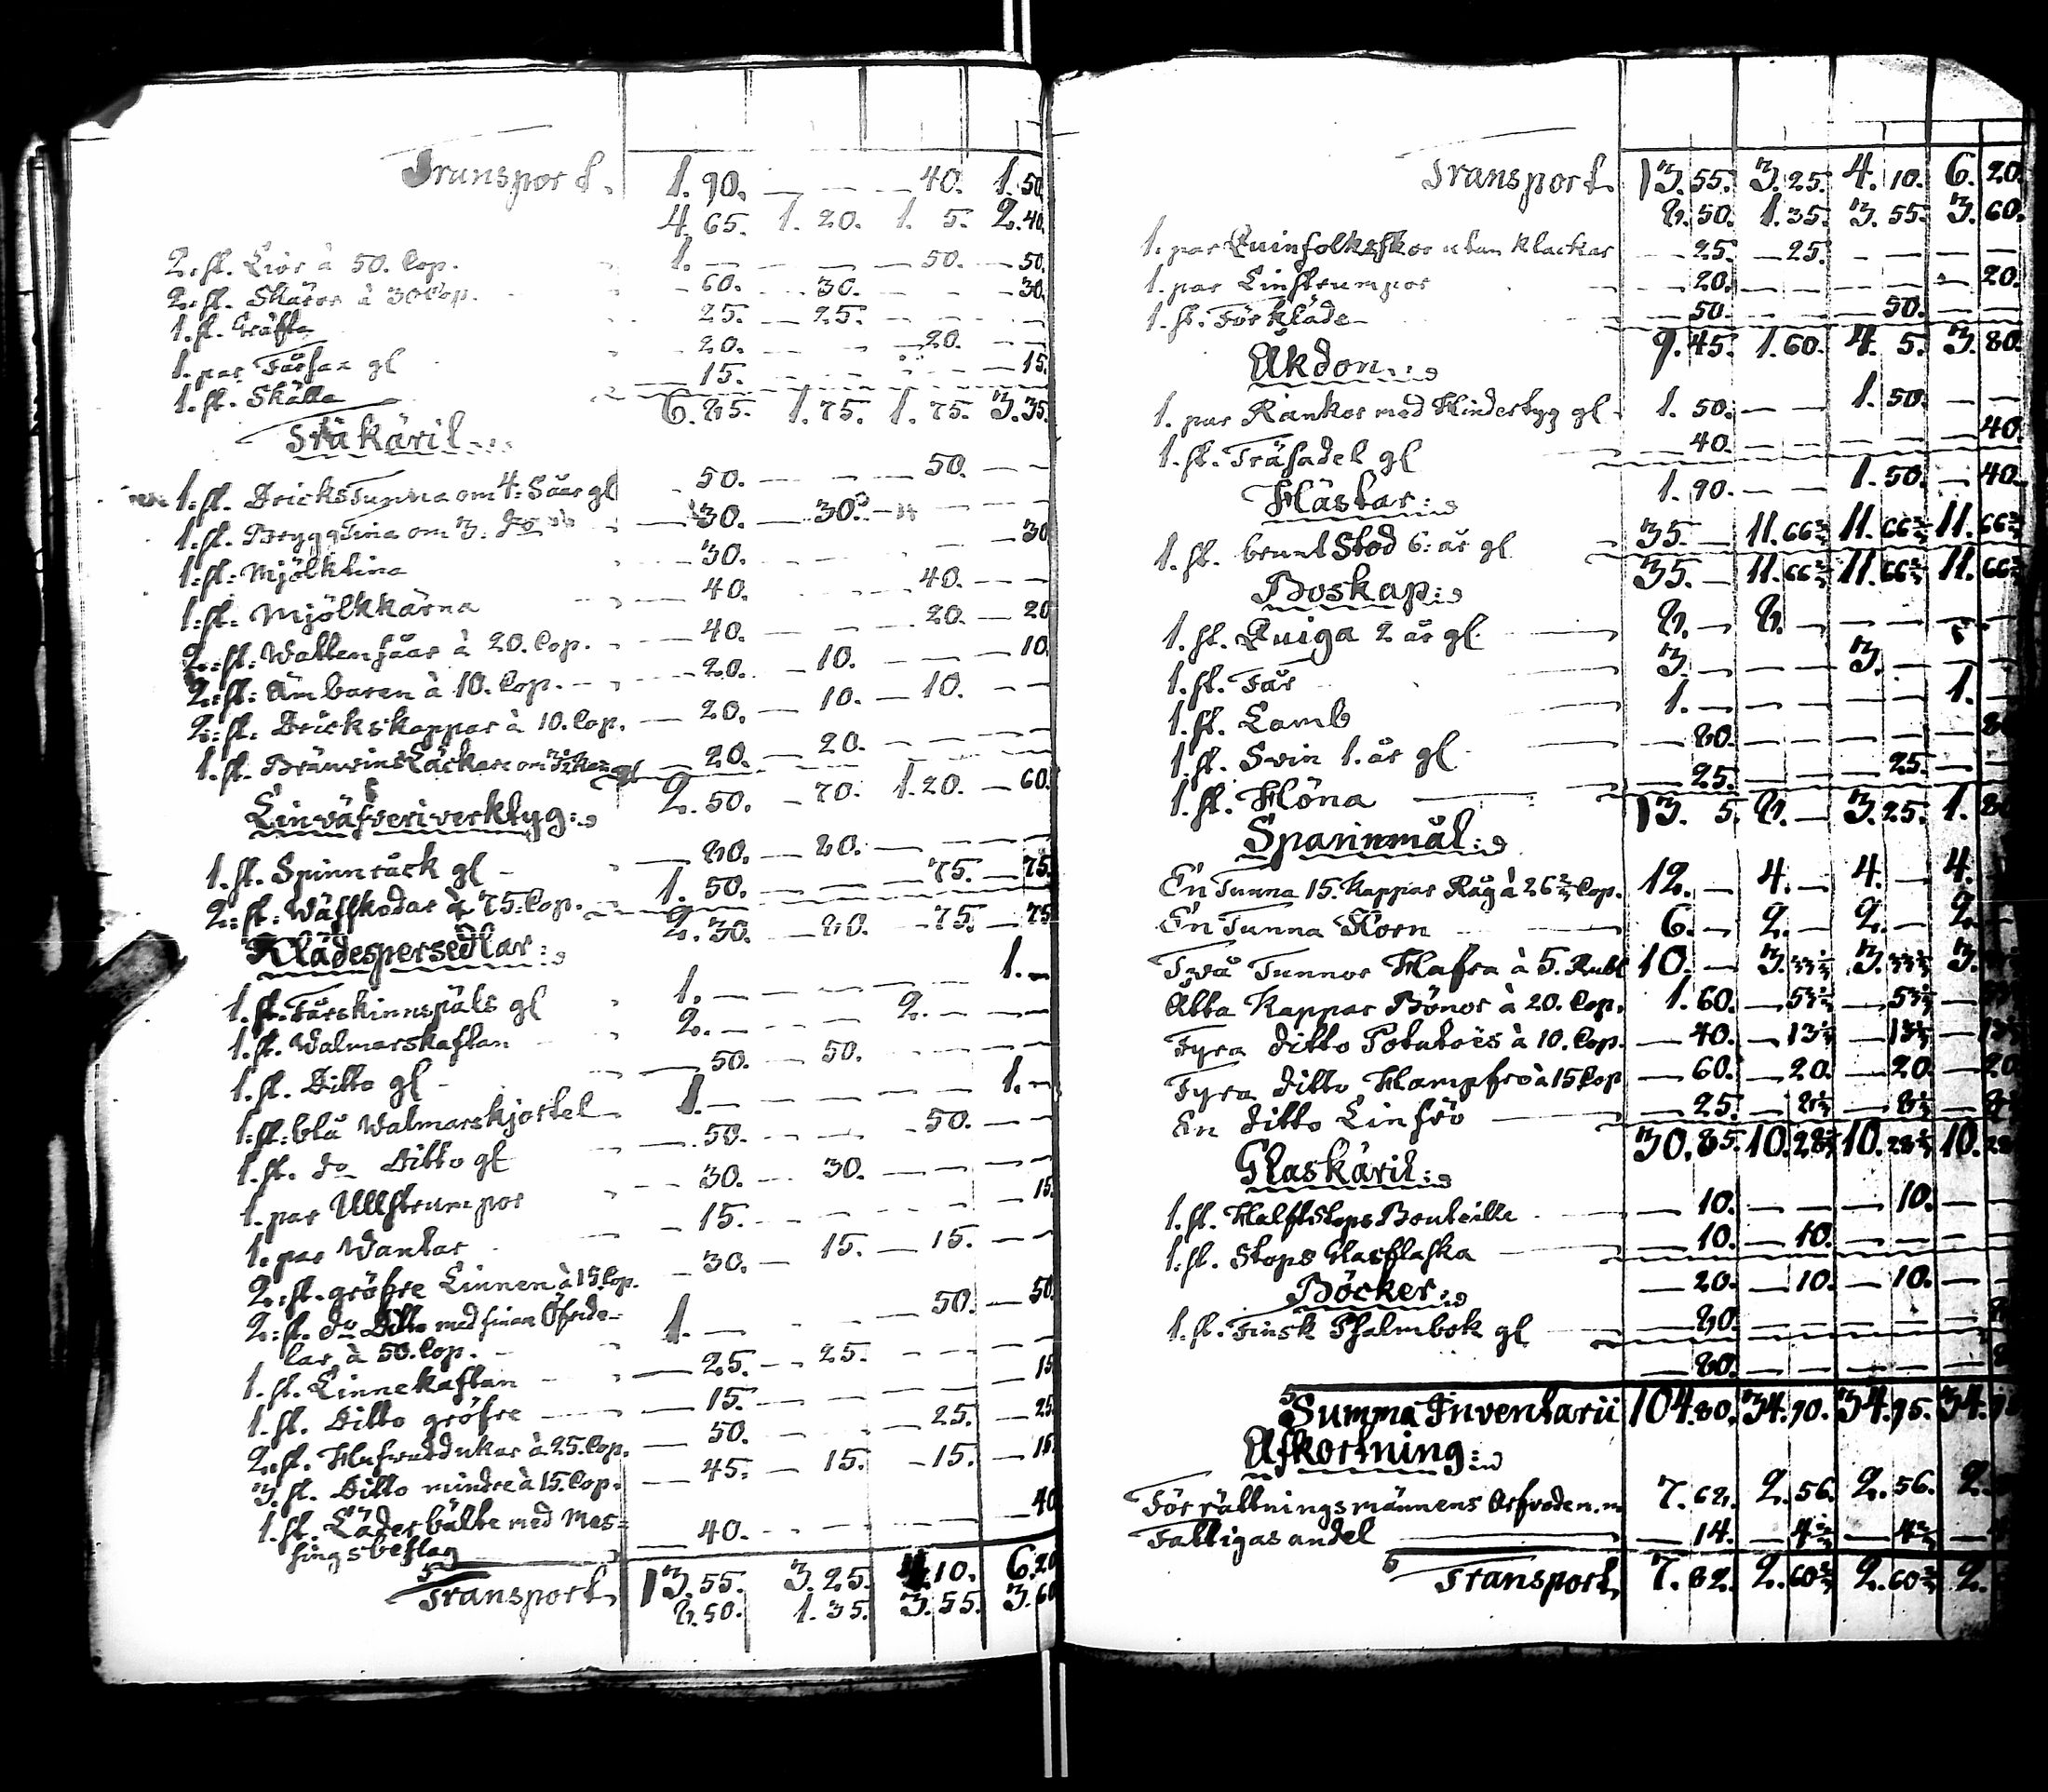 Transport. 1. 90. — — — 40. 1. 50.
4. 65. 1. 20. 1. 5. 2. 40.
2. st. Liar à 50. Cop. 1. — — — — 50. — 50.
2. st. Skäror à 30 Cop. — 60. — 30. — — — 30.
1. st. Gräfta — 25. — 25. — — — —
1. par Fårsax gl — 20. — — — 20. — —
1. st. Skälla — 15. — — — — — 15.
6. 85. 1. 75. 1. 75. 3. 35.
Träkäril
1. st. Dricks Tunna om 4. Såar gl — 50. — — — 50. — —
1. st. Brygg Tina om 3. do — 30. — 30. — — — —
1. st. Mjölktina — 30. — — — — — 30
1. st. Mjölkkärna — 40. — — — 40. — —
2. st. Wattensåar à 20. Cop. — 40. — — — 20. — 20
2. st. Ämbaren à 10. Cop. — 20. — 10. — — — 10.
2. st. Drickskappar à 10. Cop. — 20. — 10. — 10. — —
1. st. Bränvins Läckare om 3½ Kan gl — 20. — 20. — — — —
2. 50. — 70. 1. 20. — 60.
Linväfveriverktyg:
1. st. Spinnråck gl — 80. — 80. — — — —
2. st. Wäfskedar à 75. Cop. 1. 50. — — — 75. — 75.
2. 30. — 80. — 75. — 75
Klädespersedlar:
1. st. Fårskinnspäls gl 1. — — — — — 1. —
1. st. Walmarskaftan 2. — — — 2. — — —
1. st. Ditto gl — 50. — 50. — — — —
1. st. blå Walmarskjortel 1. — — — — — 1. —
1. st. do Ditto gl — 50. — — — 50. — —
1. par Ullstrumpor — 30. — 30. — — — —
1. par Wantar — 15. — — — — — 15.
2. st. gröfre Linnen à 15. Cop. — 30. — 15. — 15. — —
2. st. do Ditto med finare Öfvrde-
lar à 50. Cop. 1. — — — — 50. — 50.
1. st. Linnekaftan — 25. — 25. — — — —
1. st. Ditto gröfre — 15. — — — — — 15
2. st. Hufvuddukar à 25. Cop. — 50. — — — 25. — 25.
3. st. Ditto mindre à 15. Cop. — 45. — 15. — 15. — 15
1. st. Läderbälte med Mes=
singsbeslag — 40. — — — — — 40
Transport 13. 55. 3. 25. 4. 10. 6. 20
8. 50. 1. 35. 3. 55. 3. 60
Transport 13. 55. 3. 25. 4. 10. 6. 20.
8. 50. 1. 35. 3. 55. 3. 60.
1. par Quinfolksskor utan klackar — 25. — 25. — — — —
1. par Linstrumpor — 20. — — — — — 20.
1. st. Förkläde — 50. — — — 50. — —
9. 45. 1. 60. 4. 5. 3. 80.
Åkdon:
1. par Rankor med Hindertyg gl 1. 50. — — 1. 50. — —
1. st. Träsadel gl — 40. — — — — — 40.
1. 90. — — 1. 50. — 40.
Hästar:
1. st. brunt Stod 6. år gl 35. — 11. 66⅔ 11. 66⅔ 11. 66⅔
35. — 11. 66⅔ 11. 66⅔ 11. 66⅔
Boskap:
1. st. Quiga 2 år gl. 8. — 8. — — — — —
1. st. Får 3. — — — 3. — — —
1. st. Lamb 1. — — — — — 1. —
1. st. Svin 1. år gl — 80. — — — — — 80
1. st. Höna — 25. — — — 25. — —
13. 5. 8. — 3. 25. 1. 80
Spannmål:
En Tunna 15. Kappar Råg à 26⅔ Cop. 12. — 4. — 4. — 4.
En Tunna Korn 6. — 2. — 2. — 2. —
Två Tunnor Hafra à 5. Rubl 10. — 3. 33⅓ 3. 33⅓ 3.
Åtta Kappar Bönor à 20. Cop. 1. 60. — 53⅓ — 53⅓ —
Fyra ditto Potatoës à 10. Cop. — 40. — 13⅓ — 13⅓ — 13⅓
Fyra ditto Hampfrö à 15 Cop — 60. — 20. — 20. — 20
En ditto Linfrö — 25. — 8⅓ — 8⅓ — 8⅓
30. 85. 10. 28⅓ 10. 28⅓ 10. 28
Glaskäril:
1. st. Halfstops Bouteille — 10. — — — 10. — —
1. st. Stops Glasflaska — 10. — 10. — — — —
— 20. — 10. — 10. — —
Böcker:
1. st. Finsk Psalmbok gl — 80. — — — — — 8
— 80. — — — — — 8
Summa Inventarii 104. 80. 34. 90. 34. 95. 34. 9
Afkortning:
Förrättningsmännens Arfvoden. 7. 68. 2. 56. 2. 56. 2.
Fattigas andel — 14. — 4⅔ — 4⅔ — 4
Transport 7. 82. 2. 60⅔ 2. 60⅔ 2.